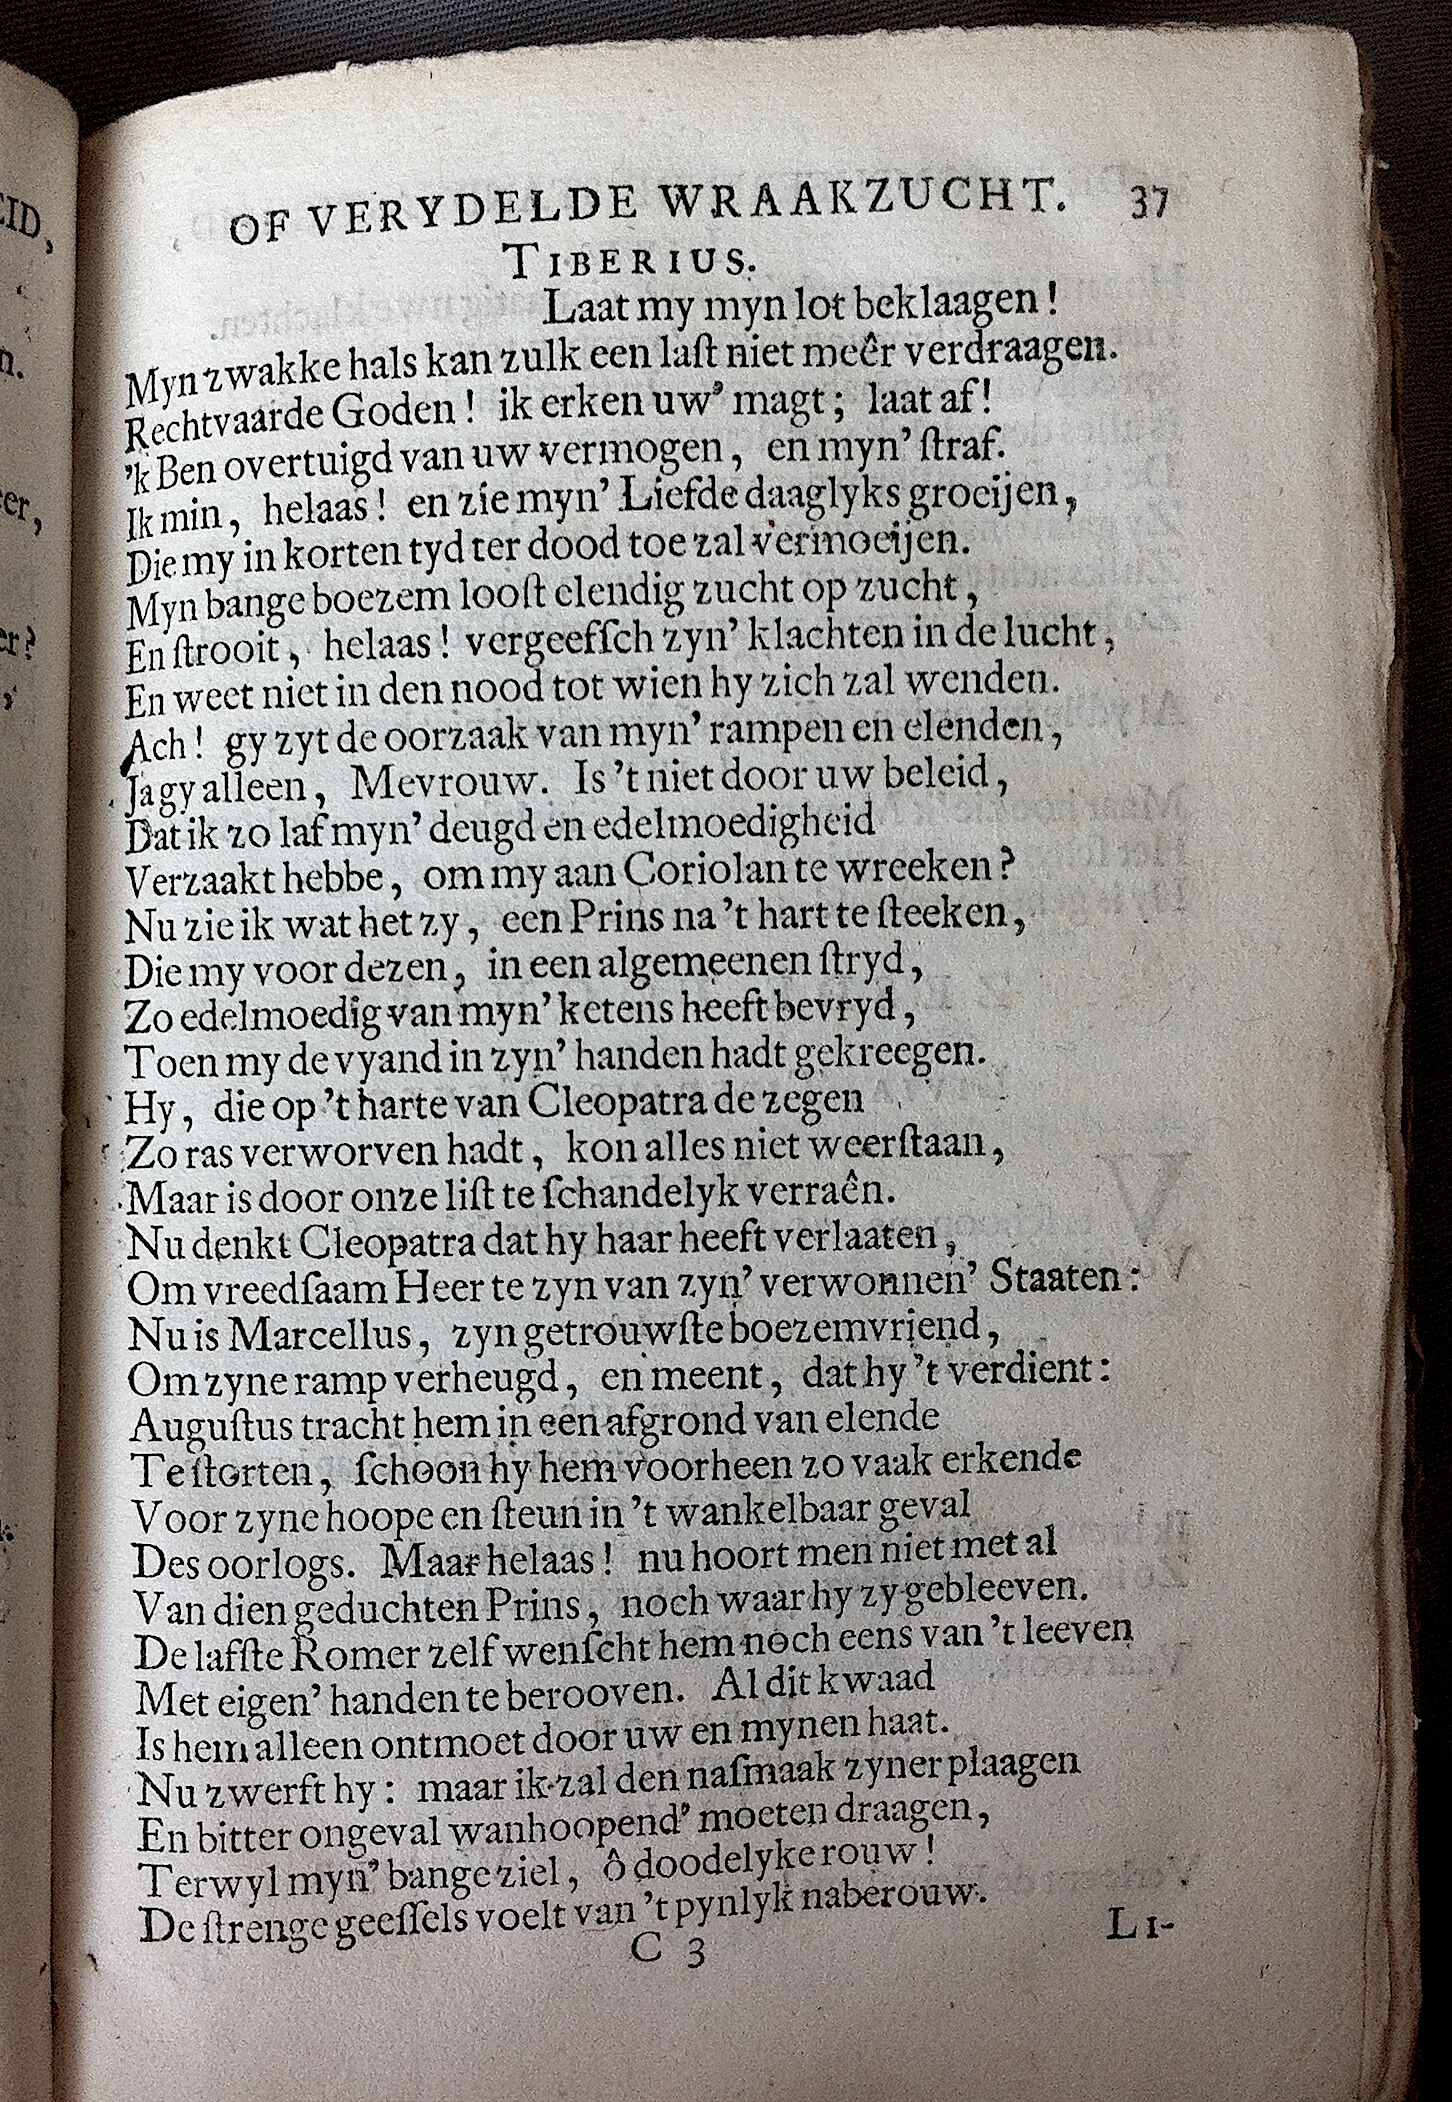 OF VERYDELDE WRAAKZUCHT. 37
TIBERIUS.
Laat my myn lot beklaagen!
Myn zwakke hals kan zulk een laſt niet meêr verdraagen.
Rechtvaarde Goden! ik erken uw' magt; laat af!
'k Ben overtuigd van uw vermogen, en myn' ſtraf.
Ik min, helaas! en zie myn' Liefde daaglyks groeijen,
Die my in korten tyd ter dood toe zal vermoeijen.
Myn bange boezem looſt elendig zucht op zucht,
En ſtrooit, helaas! vergeefſch zyn' klachten in de lucht,
En weet niet in den nood tot wien hy zich zal wenden.
Ach! gy zyt de oorzaak van myn' rampen en elenden,
Ja gy alleen, Mevrouw. Is 't niet door uw beleid,
Dat ik zo laf myn' deugd en edelmoedigheid
Verzaakt hebbe, om my aan Coriolan te wreeken?
Nu zie ik wat het zy, een Prins na 't hart te ſteeken,
Die my voor dezen, in een algemeenen ſtryd,
Zo edelmoedig van myn' ketens heeft bevryd,
Toen my de vyand in zyn' handen hadt gekreegen.
Hy, die op 't harte van Cleopatra de zegen
Zo ras verworven hadt, kon alles niet weerſtaan,
Maar is door onze liſt te ſchandelyk verraên.
Nu denkt Cleopatra dat hy haar heeft verlaaten,
Om vreedſaam Heer te zyn van zyn' verwonnen' Staaten:
Nu is Marcellus, zyn getrouwſte boezemvriend,
Om zyne ramp verheugd, en meent, dat hy 't verdient:
Auguſtus tracht hem in een afgrond van elende
Te ſtorten, ſchoon hy hem voorheen zo vaak erkende
Voor zyne hoope en ſteun in 't wankelbaar geval
Des oorlogs. Maar helaas! nu hoort men niet met al
Van dien geduchten Prins, noch waar hy zy gebleeven.
De lafſte Romer zelf wenſcht hem noch eens van 't leeven
Met eigen' handen te berooven. Al dit kwaad
Is hem alleen ontmoet door uw en mynen haat.
Nu zwerft hy: maar ik zal den naſmaak zyner plaagen
En bitter ongeval wanhoopend' moeten draagen,
Terwyl myn' bange ziel, ô doodelyke rouw!
De ſtrenge geeſſels voelt van 't pynlyk naberouw.
C 3 LI-